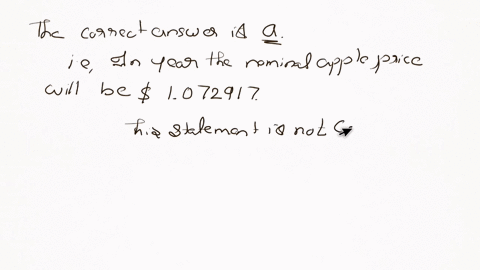 The correct answer is a.
ie, In year the nominal apple price
will be $ 1.072917.
This statement is not